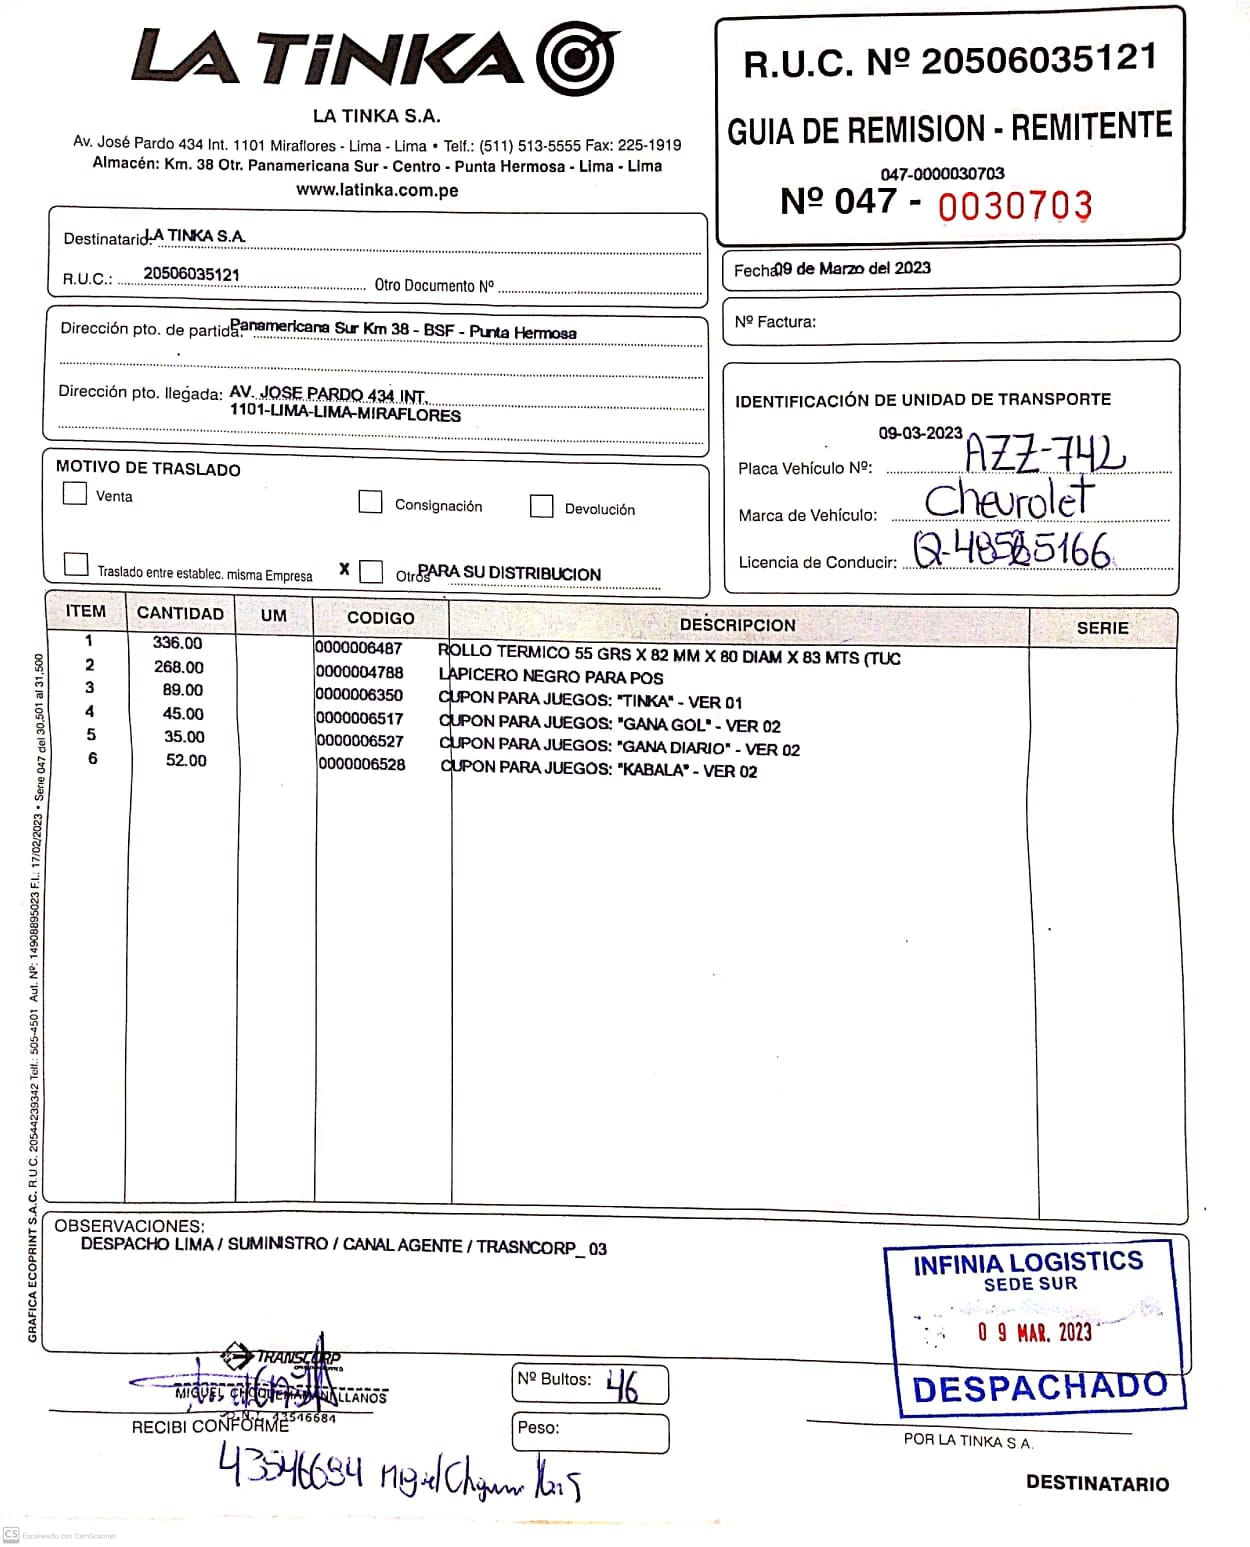 LA TiNKA
LA TINKA S.A.
Av. José Pardo 434 Int. 1101 Miraflores - Lima - Lima • Telf.: (511) 513-5555 Fax: 225-1919
Almacén: Km. 38 Otr. Panamericana Sur - Centro - Punta Hermosa - Lima - Lima
www.latinka.com.pe
R.U.C. Nº 20506035121
GUIA DE REMISION - REMITENTE
047-0000030703
Nº 047 - 0030703
Destinatario: LA TINKA S.A.
R.U.C.: 20506035121 Otro Documento Nº
Fecha 09 de Marzo del 2023
Nº Factura:
Dirección pto. de partida: Panamericana Sur Km 38 - BSF - Punta Hermosa
Dirección pto. llegada: AV. JOSE PARDO 434 INT.
1101-LIMA-LIMA-MIRAFLORES
IDENTIFICACIÓN DE UNIDAD DE TRANSPORTE
09-03-2023
Placa Vehículo Nº: AZZ-742
Marca de Vehículo: Chevrolet
Licencia de Conducir:
MOTIVO DE TRASLADO
Venta Consignación Devolución
Traslado entre establec. misma Empresa X Otros PARA SU DISTRIBUCION
ITEM CANTIDAD UM CODIGO DESCRIPCION SERIE
1 336.00 0000006487 ROLLO TERMICO 55 GRS X 82 MM X 80 DIAM X 83 MTS (TUC
2 268.00 0000004788 LAPICERO NEGRO PARA POS
3 89.00 0000006350 CUPON PARA JUEGOS: "TINKA" - VER 01
4 45.00 0000006517 CUPON PARA JUEGOS: "GANA GOL" - VER 02
5 35.00 0000006527 CUPON PARA JUEGOS: "GANA DIARIO" - VER 02
6 52.00 0000006528 CUPON PARA JUEGOS: "KABALA" - VER 02
GRAFICA ECOPRINT S.A.C. R.U.C. 20544239342 Telf.: 505-4501 Aut. Nº: 14908895023 F.I.: 17/02/2023 • Serie 047 del 30,501 al 31,500
OBSERVACIONES:
DESPACHO LIMA / SUMINISTRO / CANAL AGENTE / TRASNCORP_ 03
INFINIA LOGISTICS
SEDE SUR
09 MAR. 2023
DESPACHADO
TRANSCORP
MIGUEL LLANOS
D.N.I. 43546684
RECIBI CONFORME
43546684 Miguel
Nº Bultos: 46
Peso:
POR LA TINKA S.A.
DESTINATARIO
CS Escaneado con CamScanner